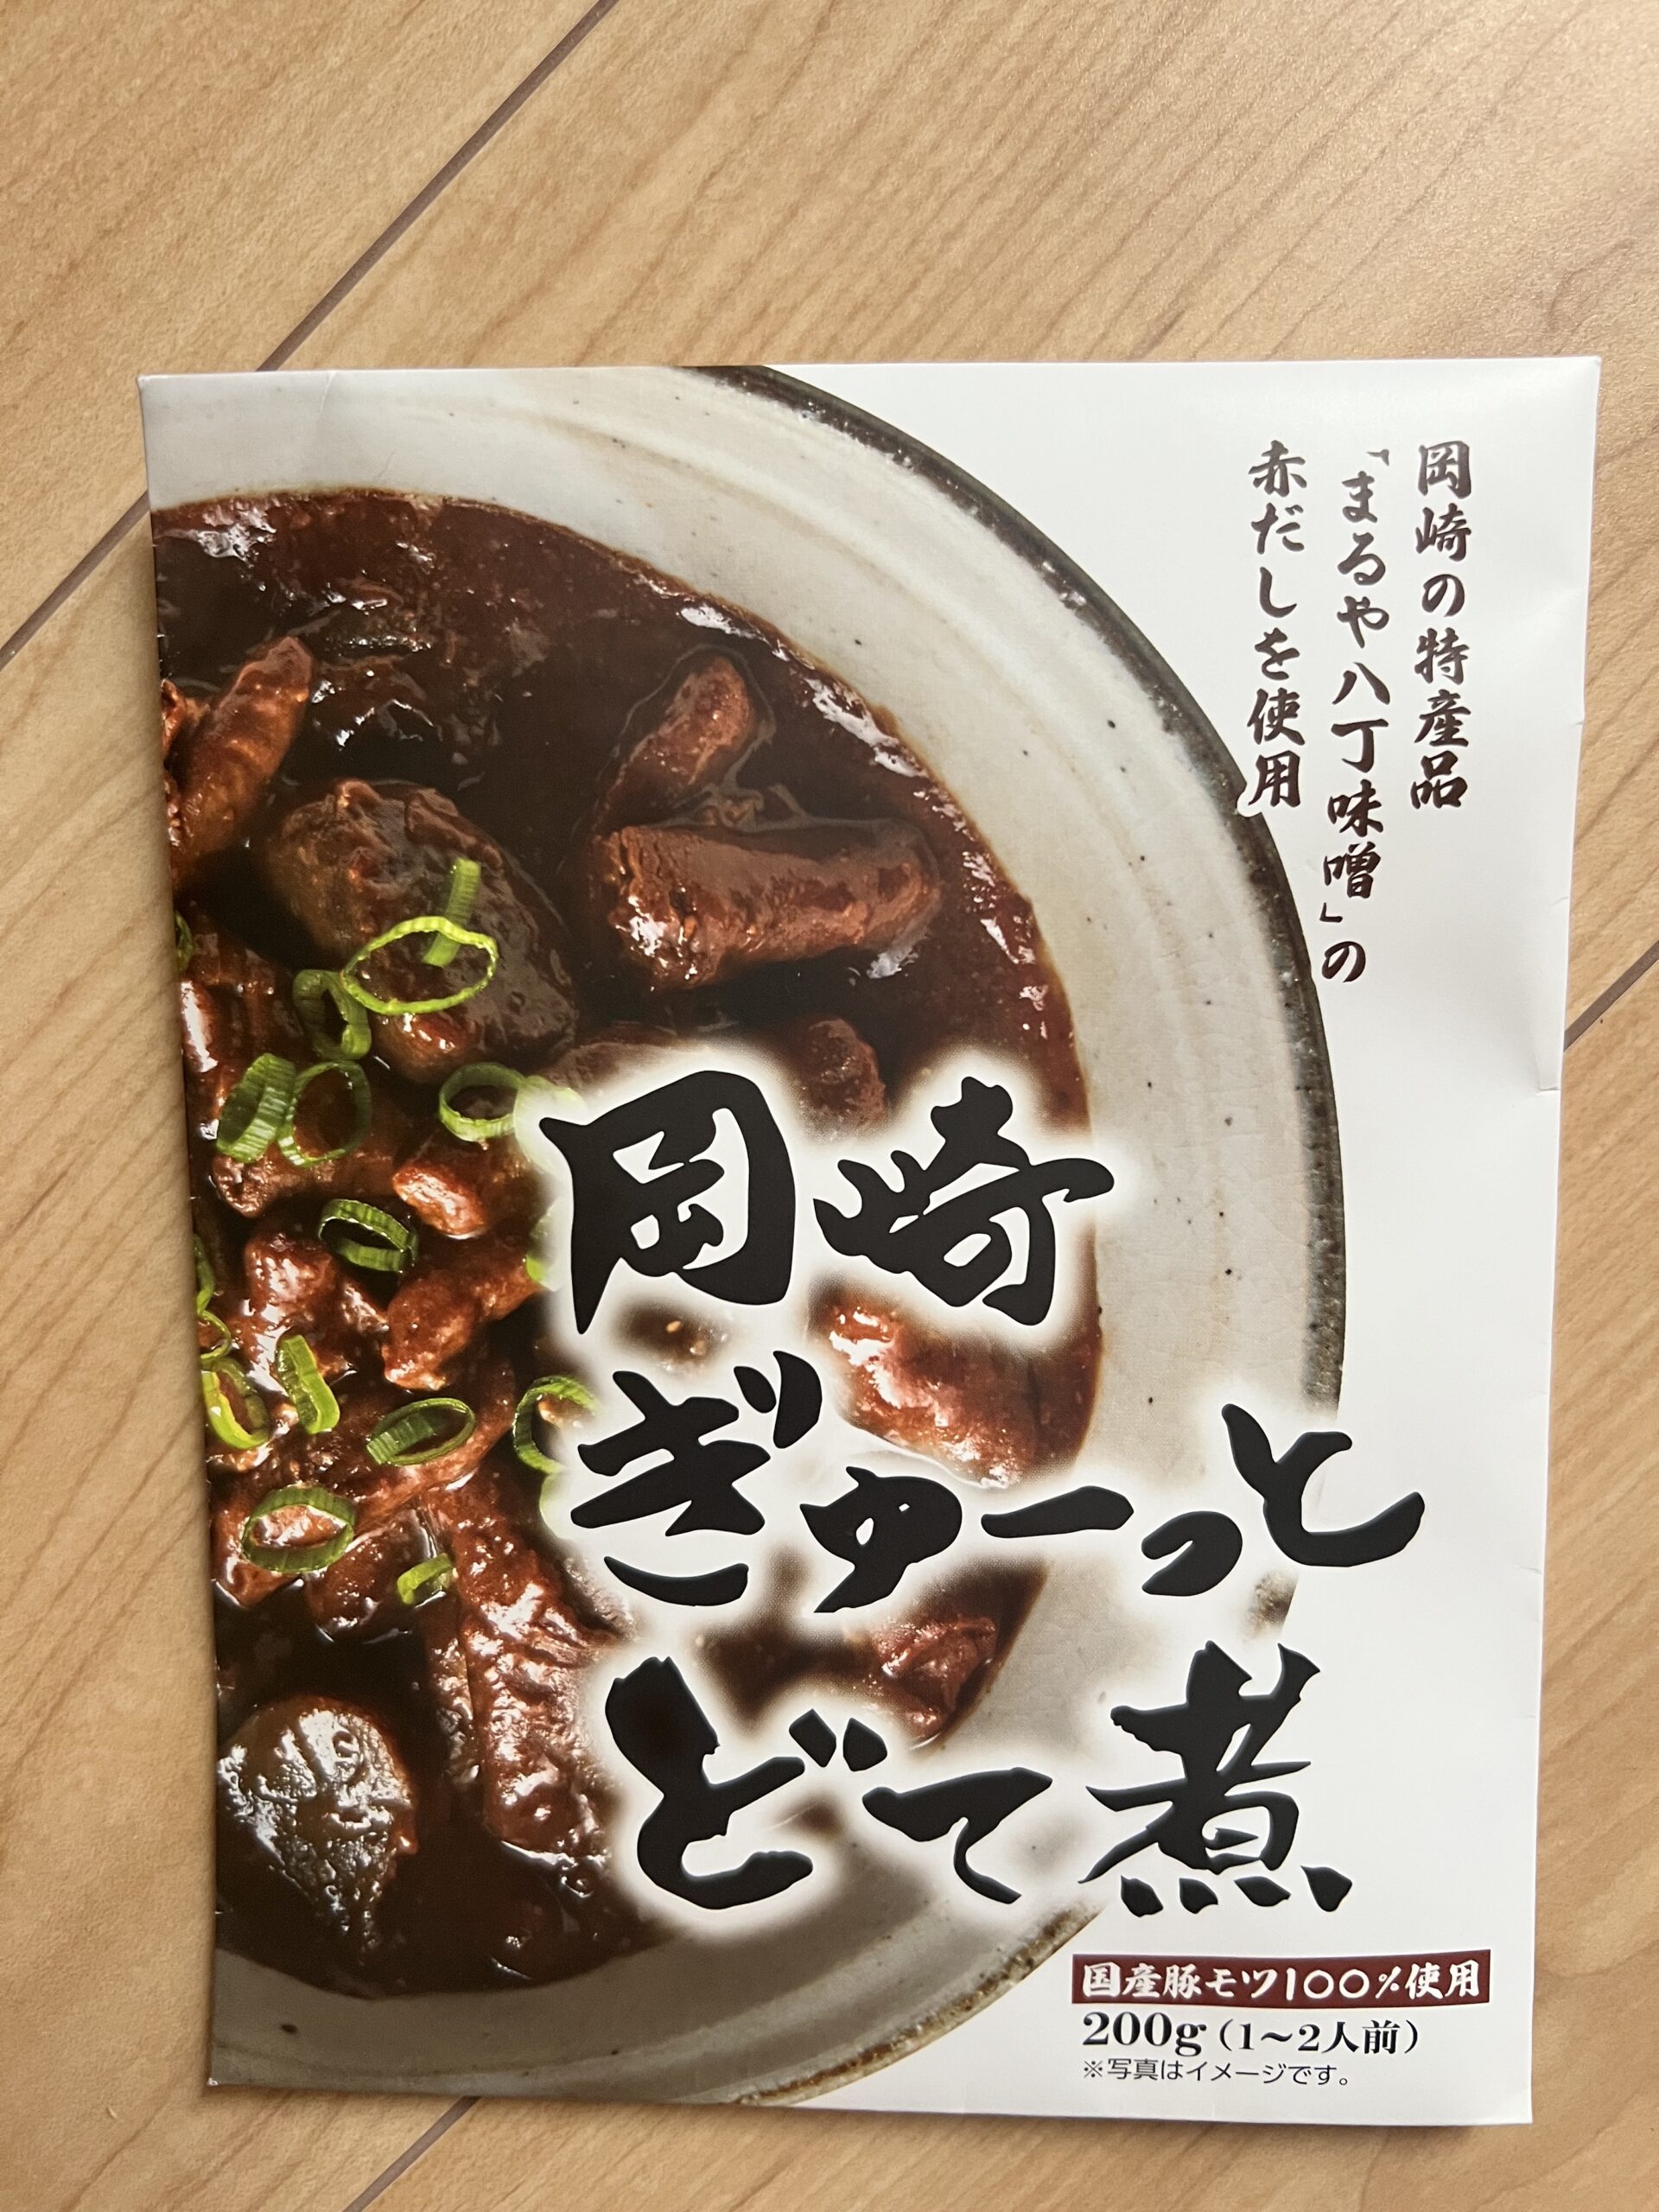 岡崎の特産品
「まるや八丁味噌」の
赤だしを使用
岡崎
ぎゅーっと
どて煮
国産豚モツ100%使用
200g(1~2人前)
※写真はイメージです。